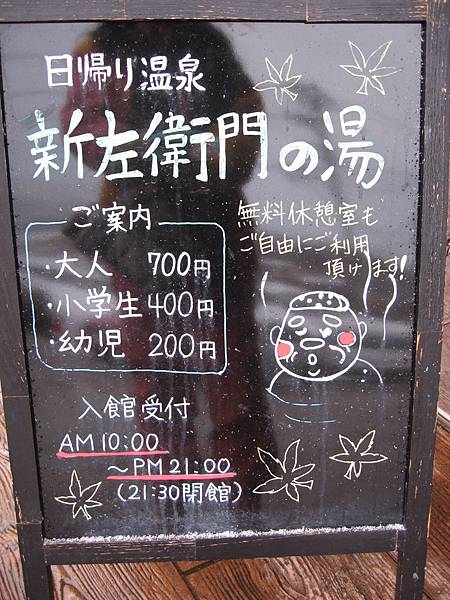 日帰り温泉
新左衛門の湯
ご案内
・大人 700円
・小学生 400円
・幼児 200円
無料休憩室も
ご自由にご利用
頂けます!
入館受付
AM 10:00
～PM 21:00
(21:30閉館)